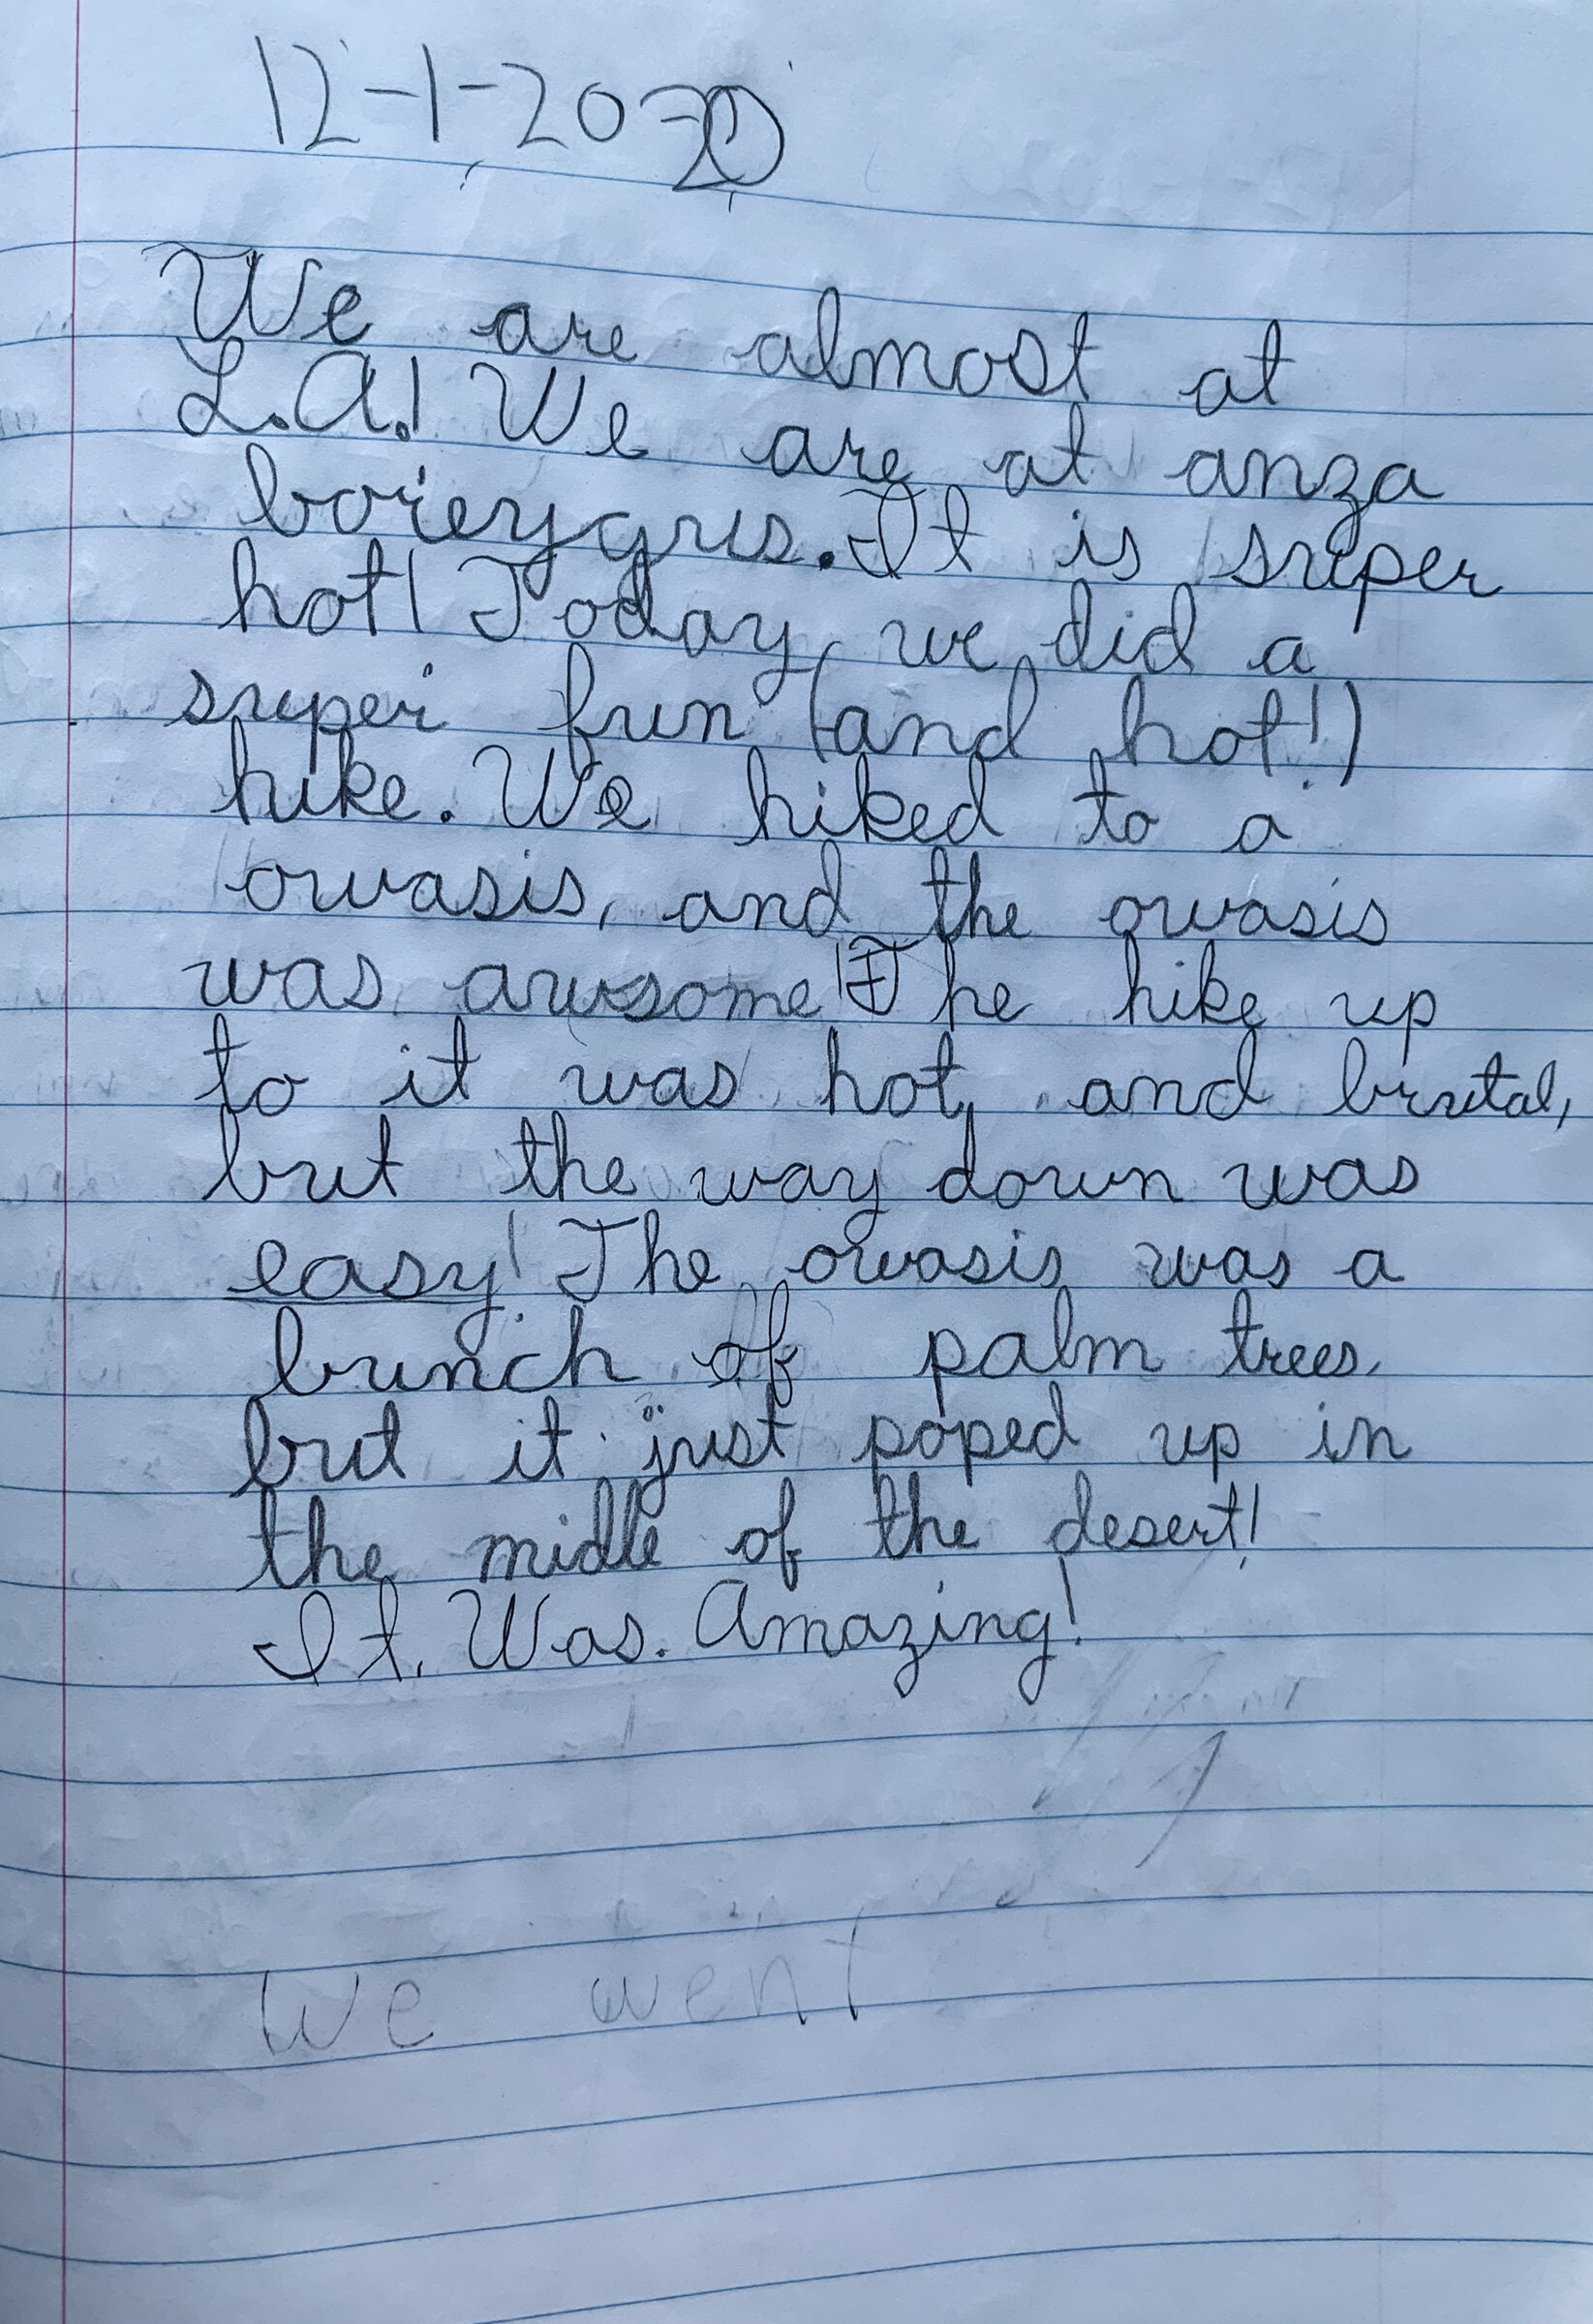 12-1-2020
We are almost at
L.A.! We are at anza
boreygus. It is super
hot! Today we did a
super fun (and hot!)
hike. We hiked to a
owasis, and the owasis
was awsome! The hike up
to it was hot, and brutal,
but the way down was
easy! The owasis was a
bunch of palm trees,
but it just poped up in
the midle of the desert!
It. Was. Amazing!
We went